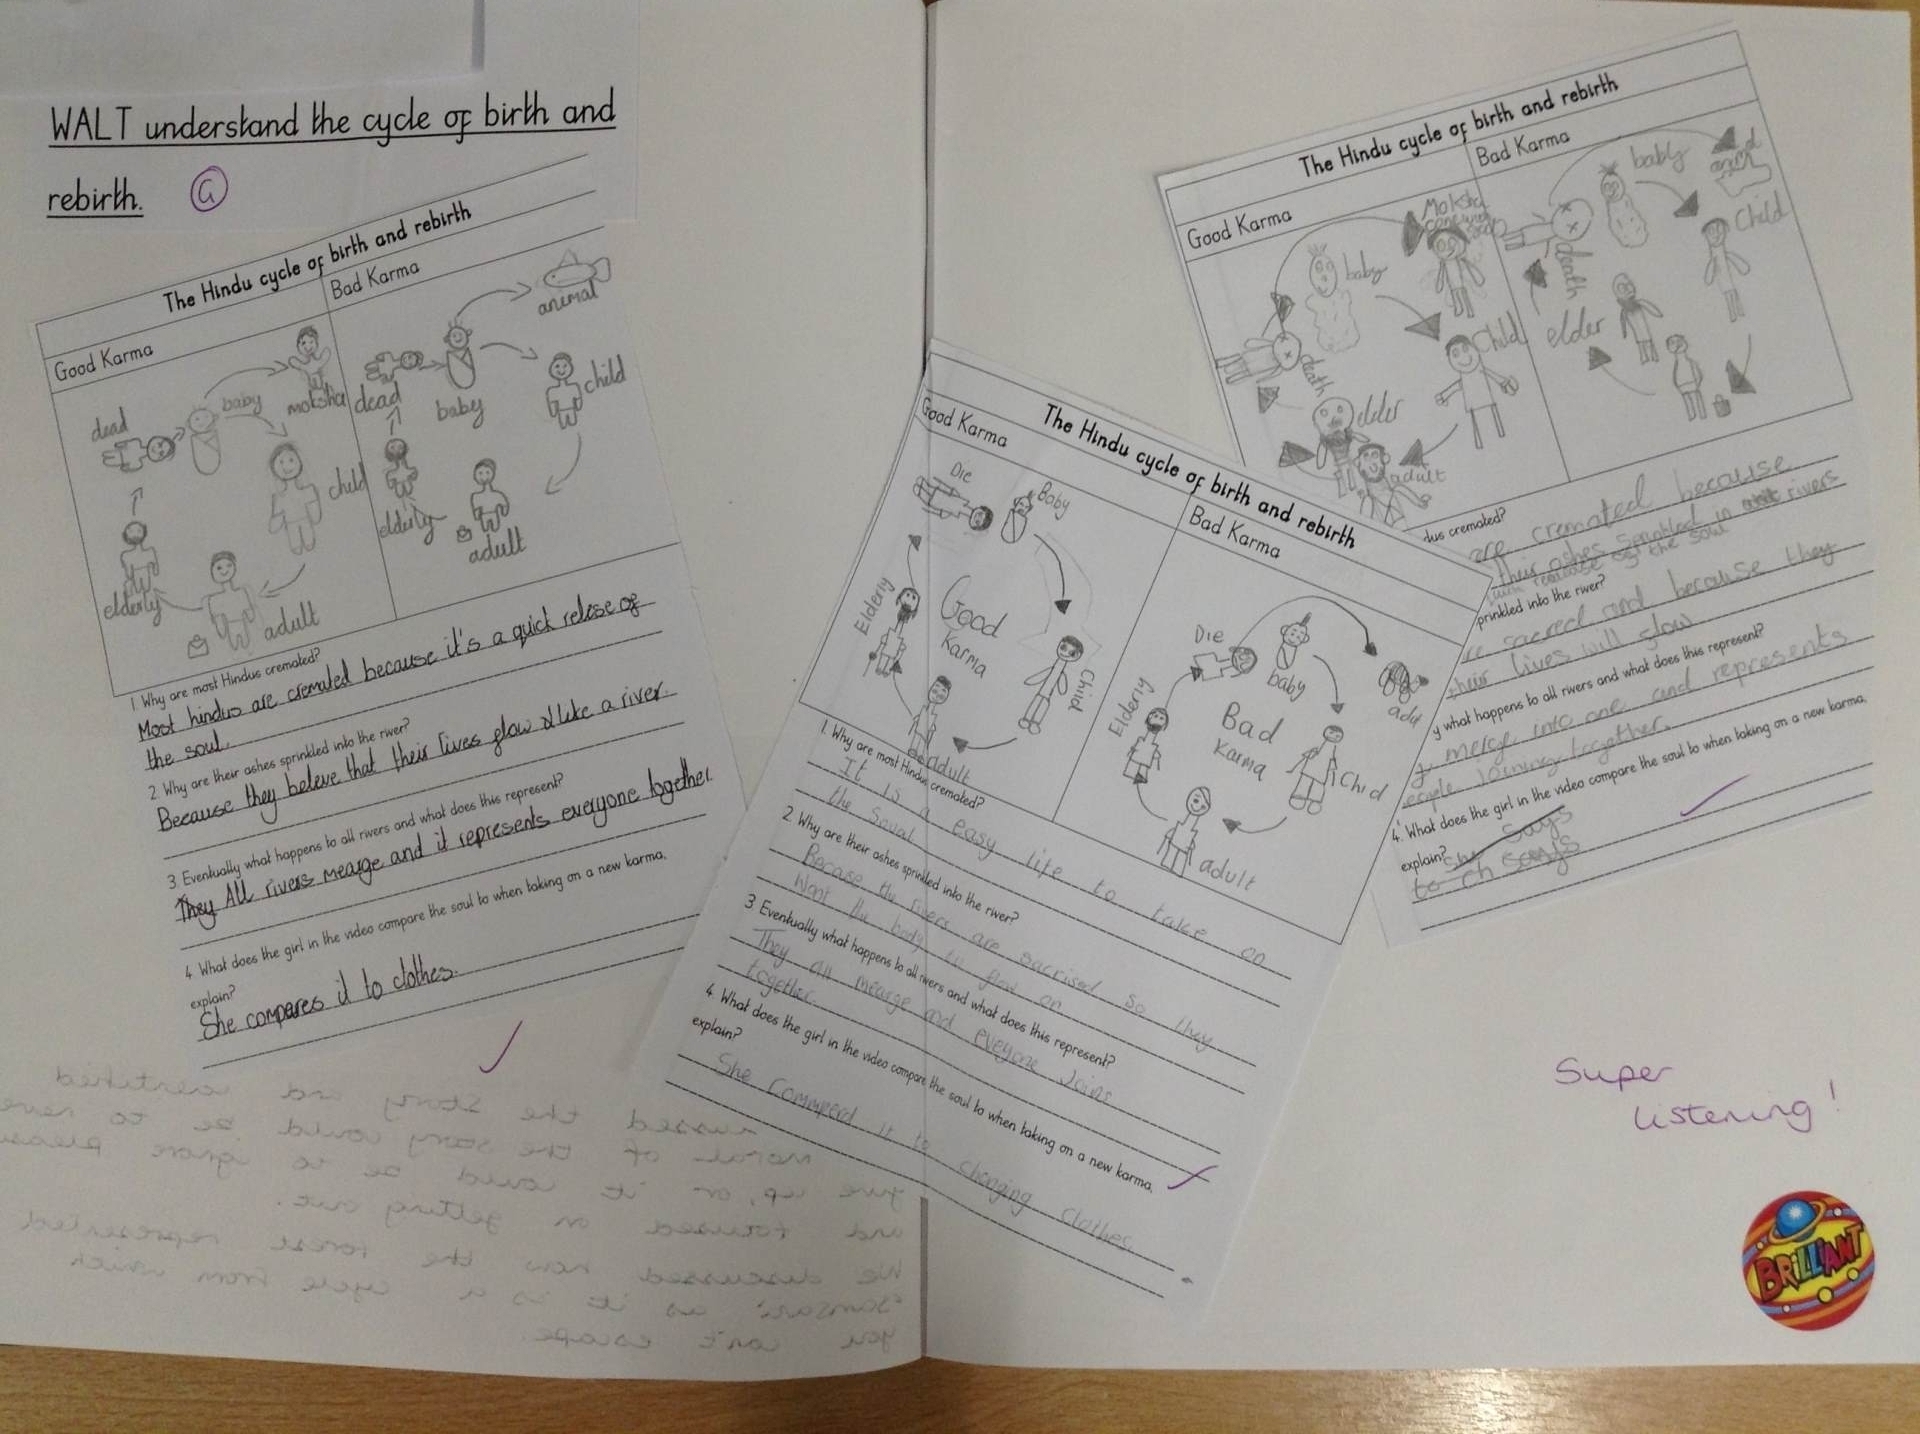 WALT understand the cycle of birth and
rebirth.
G
The Hindu cycle of birth and rebirth
Good Karma
Bad Karma
dead
baby
moksha
child
adult
elderly
dead
baby
animal
child
adult
elderly
1. Why are most Hindus cremated?
Most hindus are cremated because it's a quick relese of
the soul.
2. Why are their ashes sprinkled into the river?
Because they believe that their lives flow like a river.
3 Eventually what happens to all rivers and what does this represent?
They All rivers mearge and it represents everyone together.
4 What does the girl in the video compare the soul to when taking on a new karma,
explain?
She compares it to clothes.
The Hindu cycle of birth and rebirth
Good Karma
Bad Karma
Die
Baby
Child
adult
Elderly
Good
Karma
Die
baby
Chid
adult
Elderly
Bad
Karma
1. Why are most Hindus cremated?
It is a easy life to take on
the
2 Why are their ashes sprinkled into the river?
Becase the rivers are sacrised so they
Want the body to flow on
3 Eventually what happens to all rivers and what does this represent?
They all mearge and eveyone Joins
together.
4 What does the girl in the video compare the soul to when taking on a new karma,
explain?
She commperd it to changing clothes.
The Hindu cycle of birth and rebirth
Good Karma
Bad Karma
Moksha
baby
Child
adult
elder
death
baby
Child
elder
death
dus cremated?
are cremated because
their ashes sprinkled in rivers
release of the soul
prinkled into the river?
re sacred and because they
their lives will flow
y what happens to all rivers and what does this represent?
y merge into one and represents
eople joining together.
4. What does the girl in the video compare the soul to when taking on a new karma,
explain?
says
Super
listening!
BRILLIANT